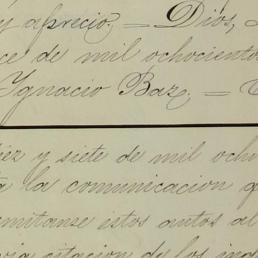 y aprecio. = Dios,
ce de mil ochociento
Ignacio Baz. =
iez y siete de mil ocho
la comunicacion q
emitanse estos autos al
citacion de los ind